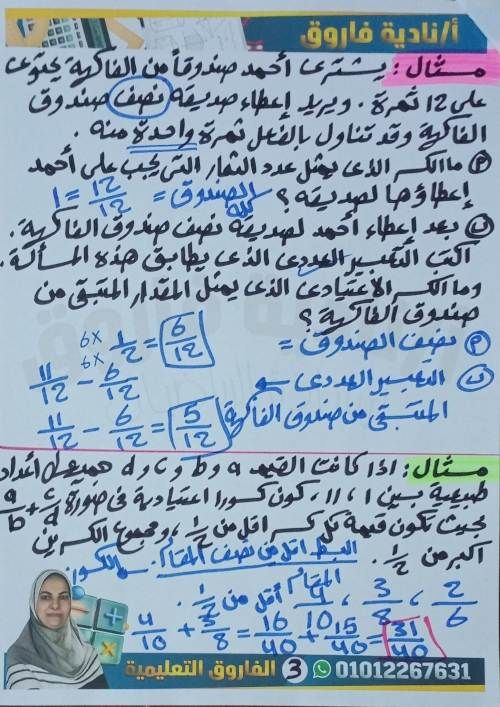 أ/نادية فاروق
مثال: يشترى أحمد صندوقاً من الفاكهة يحتوى
على 12 ثمرة. ويريد إعطاء صديقه نصف صندوق
الفاكهة وقد تناول بالفعل ثمرة واحدة منه.
(أ) ما الكسر الذى يمثل عدد الثمار التى يجب على أحمد
إعطاؤها لصديقه؟ الصندوق كله = 12/12 = 1
(ب) بعد إعطاء أحمد لصديقه نصف صندوق الفاكهة.
اكتب التعبير العددى الذى يطابق هذه المسألة.
وما الكسر الاعتيادى الذى يمثل المقدار المتبقى من
صندوق الفاكهة؟
(أ) نصف الصندوق = 6× 1/2 6× = 6/12
(ب) التعبير العددى 11/12 − 6/12
المتبقى من صندوق الفاكهة 11/12 − 6/12 = 5/12
مثال: اذا كانت القيم a و b و c و d هى أعداد
طبيعية بين 1، 11، كون كسورا اعتيادية فى صورة a/b + c/d
بحيث تكون قيمة كل كسر اقل من 1/2، ومجموع الكسرين
اكبر من 1/2.
البسط اقل من نصف المقام. الكسور
المقام أقل من 1/2. 4/10، 3/8، 2/6
4/10 + 3/8 = 16/40 + 15/40 = 31/40
الفاروق التعليمية 3 01012267631